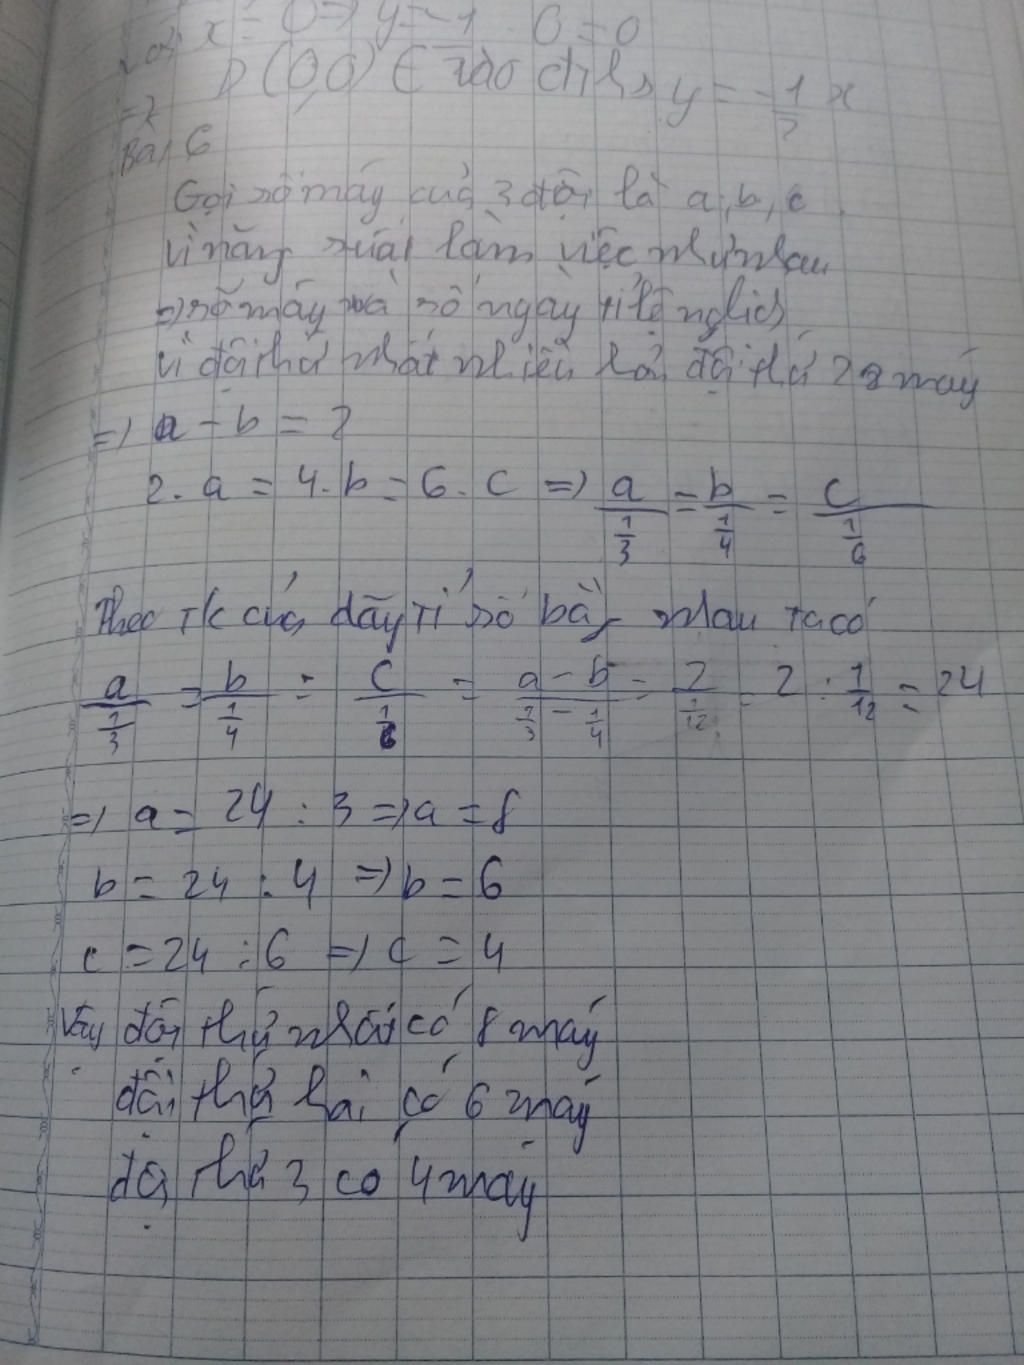 Với x = 0 => y = -1 . 0 = 0
D(0,0) ∈ vào đths y = -1/2 x
=>
Bài 6
Gọi số máy của 3 đội là a, b, c
Vì năng suất làm việc như nhau
=> số máy và số ngày tỉ lệ nghịch
Vì đội thứ nhất nhiều hơn đội thứ 2 2 máy
=> a - b = 2
2. a = 4. b = 6. c => a/(1/3) = b/(1/4) = c/(1/6)
Theo T/c của dãy tỉ số bằng nhau ta có
a/(1/3) = b/(1/4) = c/(1/6) = (a - b)/(1/3 - 1/4) = 2/(1/12) = 2 : 1/12 = 24
=> a = 24 : 3 => a = 8
b = 24 : 4 => b = 6
c = 24 : 6 => c = 4
Vậy đội thứ nhất có 8 máy
đội thứ hai có 6 máy
đội thứ 3 có 4 máy